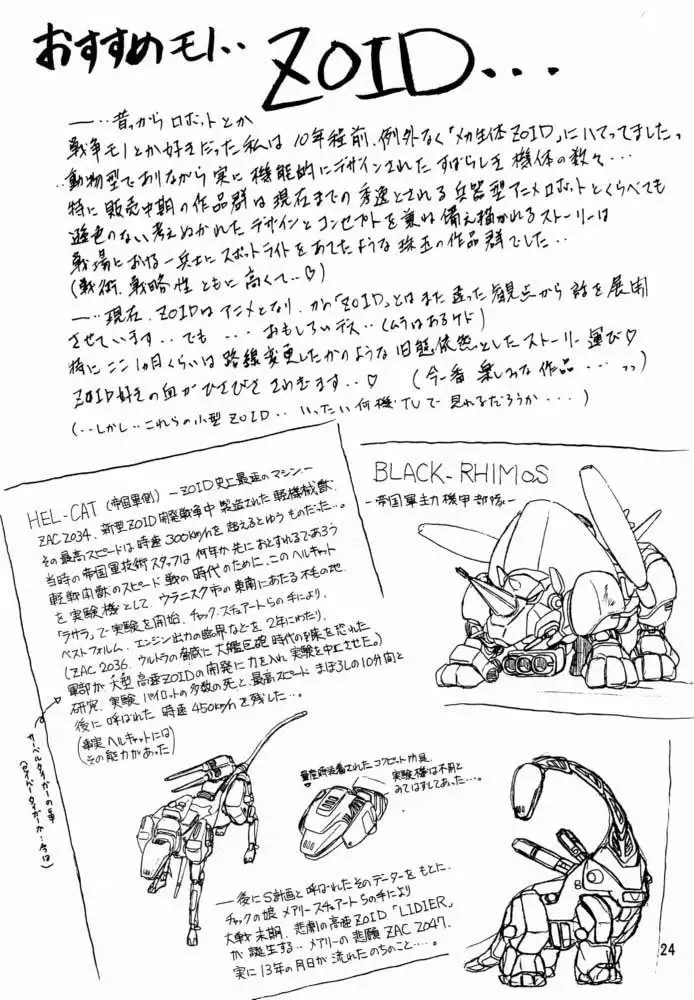 おすすめモノ‥ ZOID...
―‥昔っから ロボットとか
戦争モノとか好きだった私は 10年程前、例外なく「メカ生体ZOID」にハマってましたっ
‥動物型でありながら実に 機能的にデザインされた すばらしき 機体の数々‥‥
特に 販売中期の作品群は現在までの 秀逸とされる 兵器型アニメロボットとくらべても
遜色のない 考えぬかれた デザインとコンセプトを 兼ね備え 描かれるストーリーは
戦場における 一兵士に スポットライトを あてたような 珠玉の作品群でした‥
(戦術、戦略性 ともに 高くて‥♡)
―‥現在、ZOIDは アニメとなり、かの「ZOID」とは また違った 観点から 話を展開
させています‥でも ‥‥ おもしろいデス‥(ムラはあるケド)
特に ここ1ヵ月くらいは 路線変更したかのような 旧態依然とした ストーリー運び♡
ZOID好きの血が ひさびさ さわぎます‥♡ (今一番 楽しみな作品‥‥っっ)
(‥しかし‥これらの小型 ZOID‥ いったい何機 TVで 見れるだろうか‥‥)
HEL-CAT (帝国軍側) ―ZOID史上最速のマシン―
ZAC2034、新型ZOID開発戦争中 製造された 軽機械獣。
その最高スピードは 時速300km/hを 超えるとゆうものだった‥。
当時の帝国軍技術スタッフは 何年か先に おとずれるであろう
軽戦闘獣のスピード戦の時代のために、このヘルキャット
を実験機として、ウラニスク市の東南にあたる 不毛の地、
「ラサラ」で実験を開始、チャック、スチュアートらの手により、
ベストフォルム、エンジン出力の臨界などを 2年にわたり、
(ZAC 2036、ウルトラの脅威に大艦巨砲時代の到来を恐れた
軍部が、大型 高速ZOIDの開発に力を入れ 実験を中止させた。)
研究、実験パイロットの多数の死と、最高スピード まぼろしの10分間と
後に 呼ばれた 時速 450km/hを 残した‥。
(事実ヘルキャットには
その能力があった)
サーベルタイガーの事
(セイバータイガーか‥今は)
BLACK-RHIMOS
―帝国軍主力機甲部隊―
量産時装着されたコクピット防具、
実験機は不用と
みてはずしてあった‥‥。
―後にS計画と呼ばれた そのデーターを もとに、
チャックの娘 メアリースチュアートらの手により
大戦末期、悲劇の高速ZOID「LIDIER」
が誕生する‥ メアリーの悲願 ZAC 2047.
実に 13年の月日が 流れたのちのこと‥‥。
24